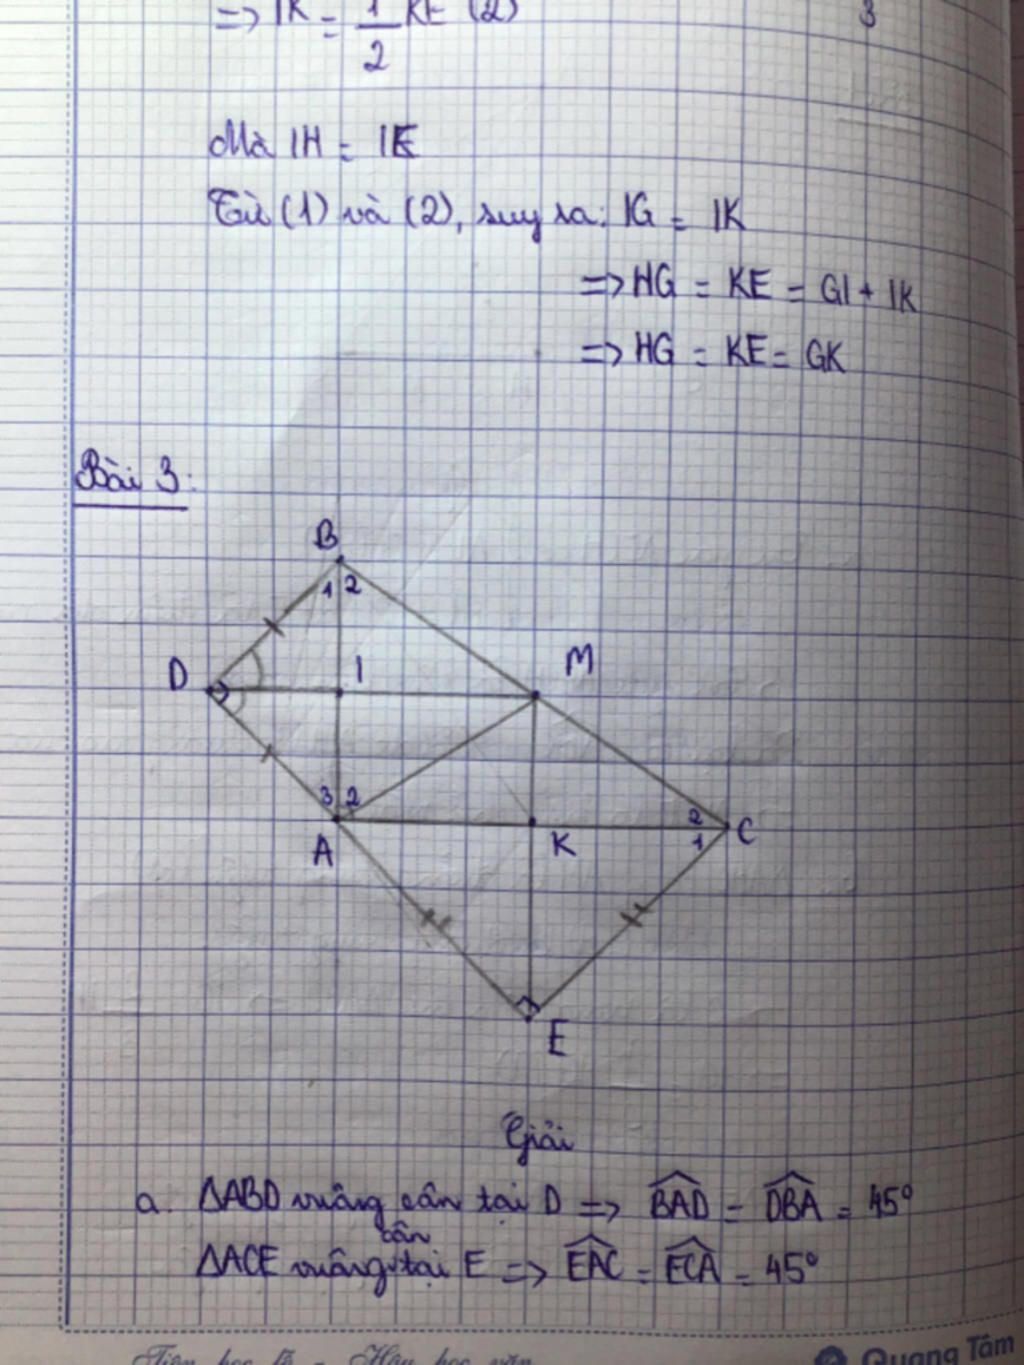 => IK = 1/2 KE (2)
3
Mà IH = IE
Từ (1) và (2), suy ra: IG = IK
=> HG = KE = GI + IK
=> HG = KE = GK
Bài 3:
B
1 2
D I M
3 2 2
A K 1 C
E
Giải
a. ΔABD vuông cân tại D => \widehat{BAD} = \widehat{DBA} = 45°
cân
ΔACE vuông tại E => \widehat{EAC} = \widehat{ECA} = 45°
Tiên học lễ - Hậu học văn
Quang Tâm